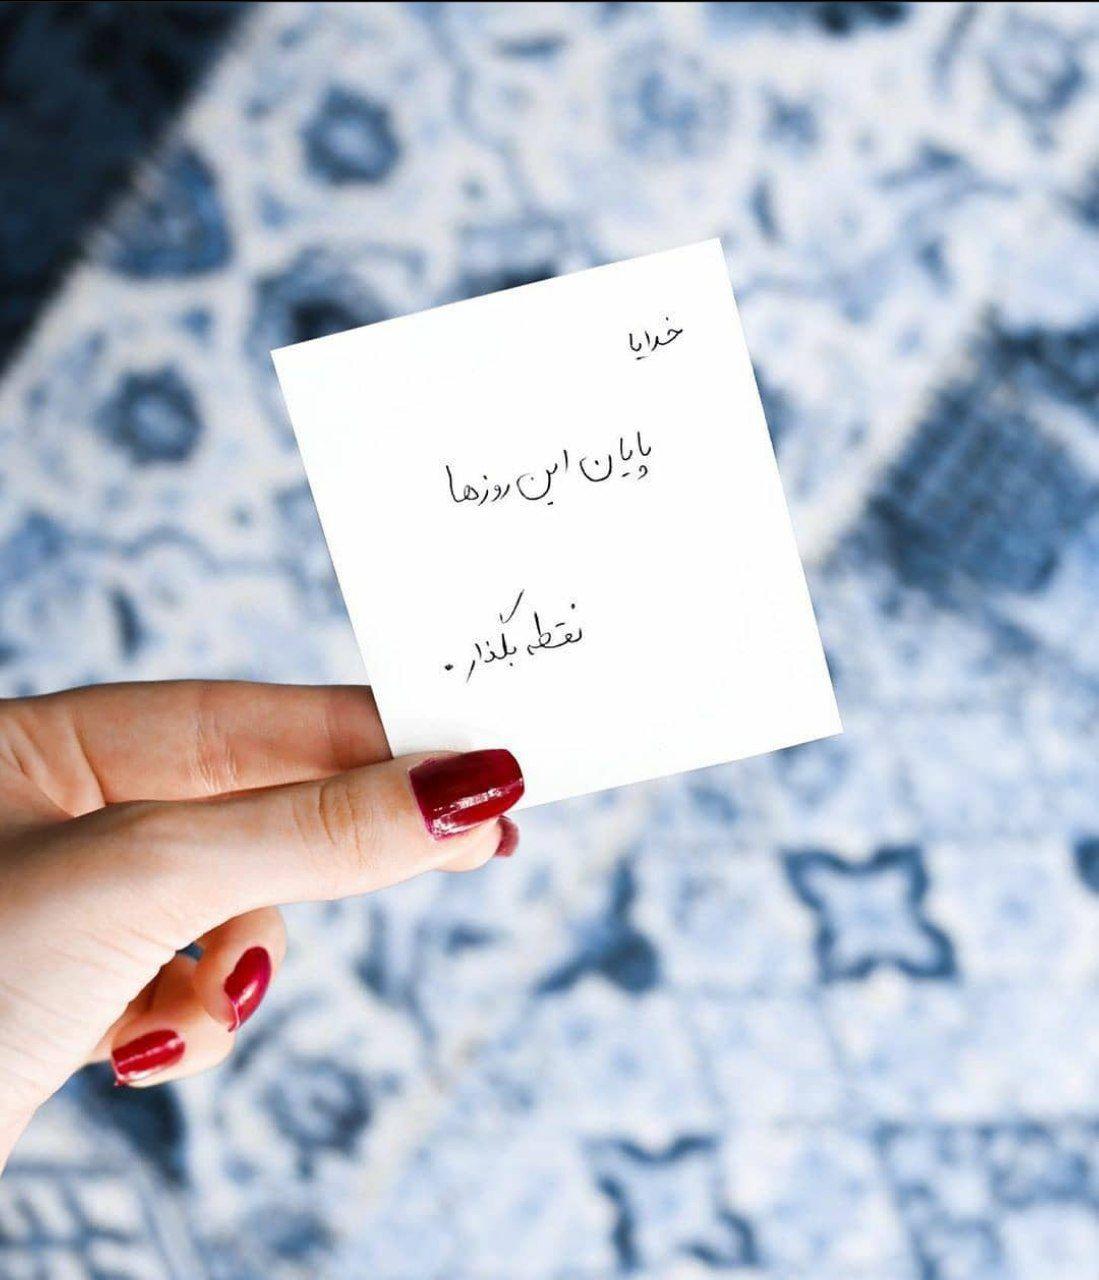 خدایا
پایان این روزها
نقطه بگذار.